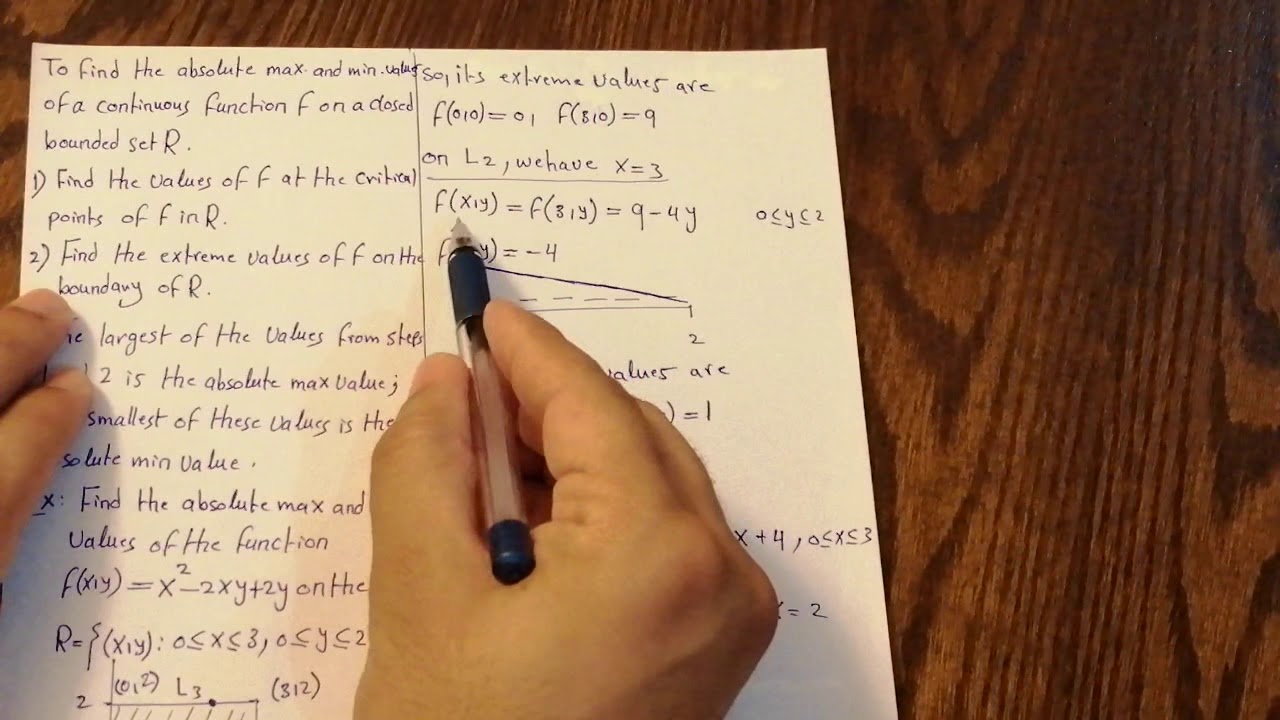 To find the absolute max. and min. values
of a continuous function f on a closed
bounded set R.
1) Find the values of f at the critical
points of f in R.
2) Find the extreme values of f on the
boundary of R.
largest of the values from steps
2 is the absolute max value;
smallest of these values is the
solute min value.
x: Find the absolute max and
values of the function
f(x,y) = x² - 2xy + 2y on the
R = {(x,y): 0 ≤ x ≤ 3, 0 ≤ y ≤ 2
(0,2) L3 (3,2)
2
so, its extreme values are
f(0,0) = 0, f(3,0) = 9
on L2, we have x = 3
f(x,y) = f(3,y) = 9 - 4y 0 ≤ y ≤ 2
y) = -4
2
values are
) = 1
x + 4, 0 ≤ x ≤ 3
= 2